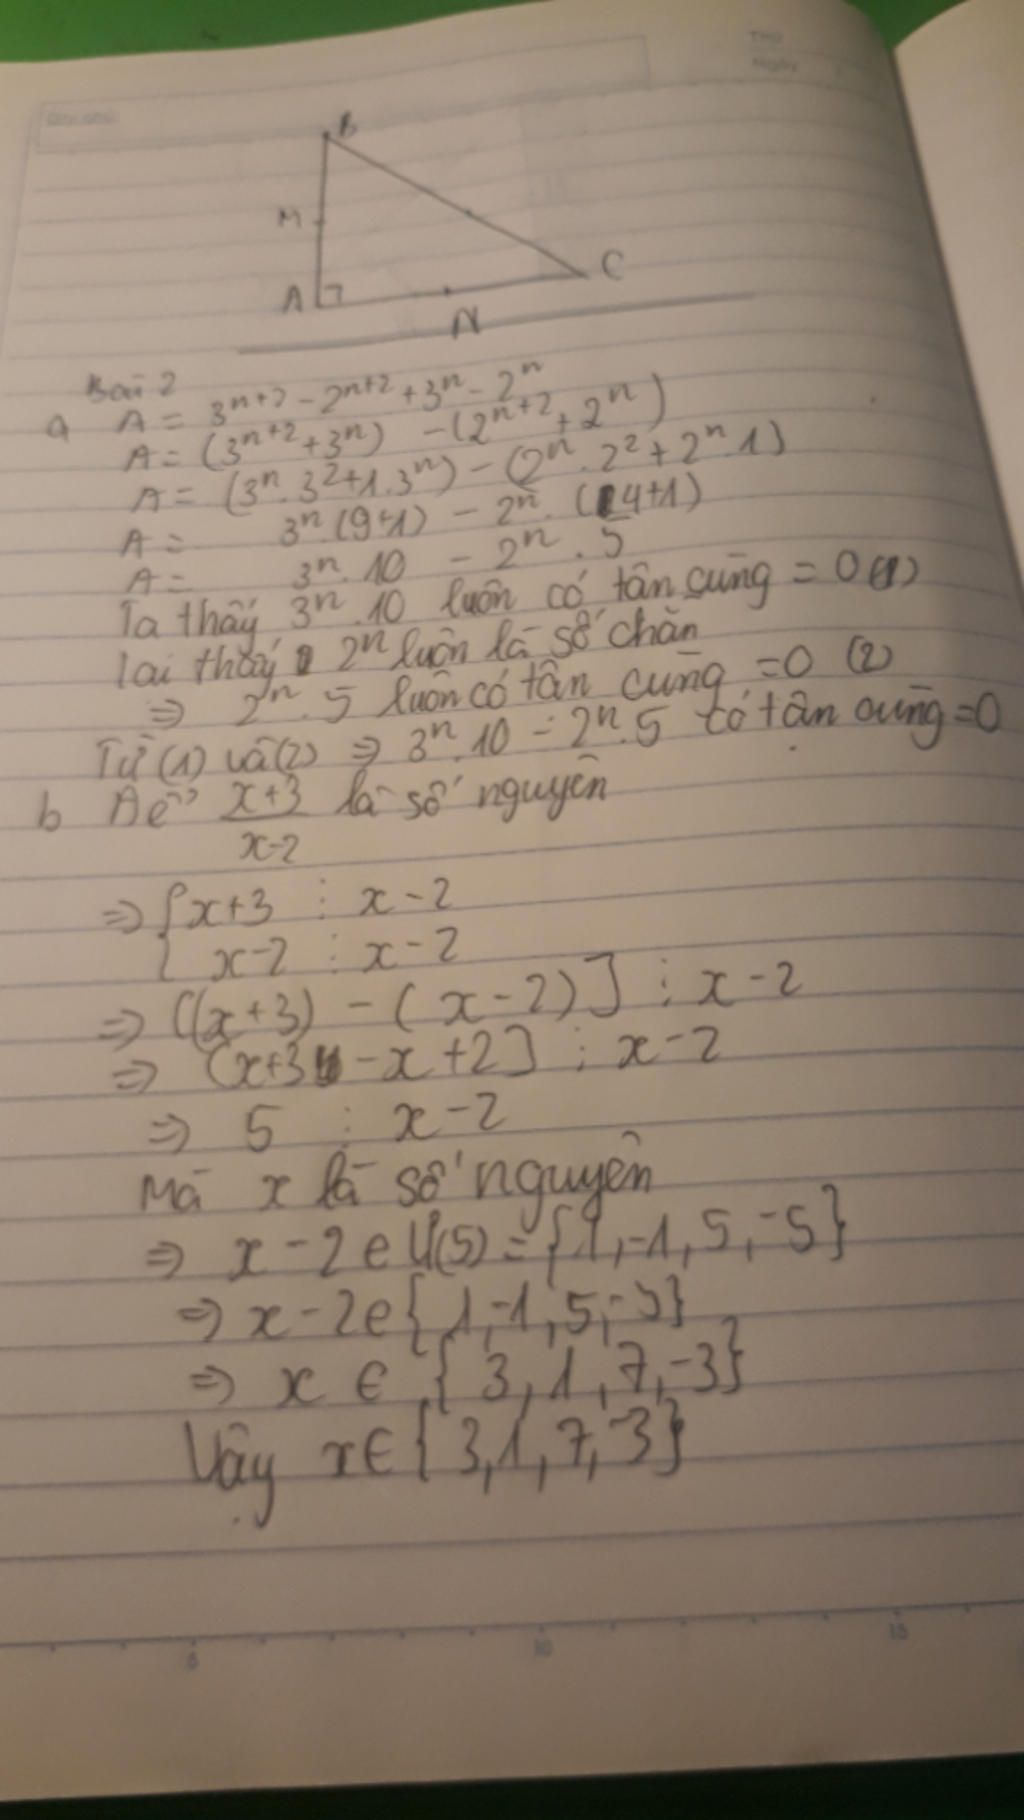 Thứ
Ngày
Ghi chú
B
M
A
C
N
Bài 2
a A = 3ⁿ⁺² - 2ⁿ⁺² + 3ⁿ - 2ⁿ
A = (3ⁿ⁺² + 3ⁿ) - (2ⁿ⁺² + 2ⁿ)
A = (3ⁿ.3² + 1.3ⁿ) - (2ⁿ.2² + 2ⁿ.1)
A = 3ⁿ.(9+1) - 2ⁿ.(4+1)
A = 3ⁿ.10 - 2ⁿ.5
Ta thấy 3ⁿ.10 luôn có tận cùng = 0 (1)
lại thấy 2ⁿ luôn là số chẵn
⇒ 2ⁿ.5 luôn có tận cùng = 0 (2)
Từ (1) và (2) ⇒ 3ⁿ.10 - 2ⁿ.5 có tận cùng = 0
b Để x+3/x-2 là số nguyên
⇒ { x+3 ⋮ x-2
{ x-2 ⋮ x-2
⇒ ((x+3) - (x-2)] ⋮ x-2
⇒ (x+3 - x+2] ⋮ x-2
⇒ 5 ⋮ x-2
Mà x là số nguyên
⇒ x-2 e Ư(5) = {1,-1,5,-5}
⇒ x-2 e {1,-1,5,-5}
⇒ x ∈ {3,1,7,-3}
Vậy x ∈ {3,1,7,-3}
5
10
15